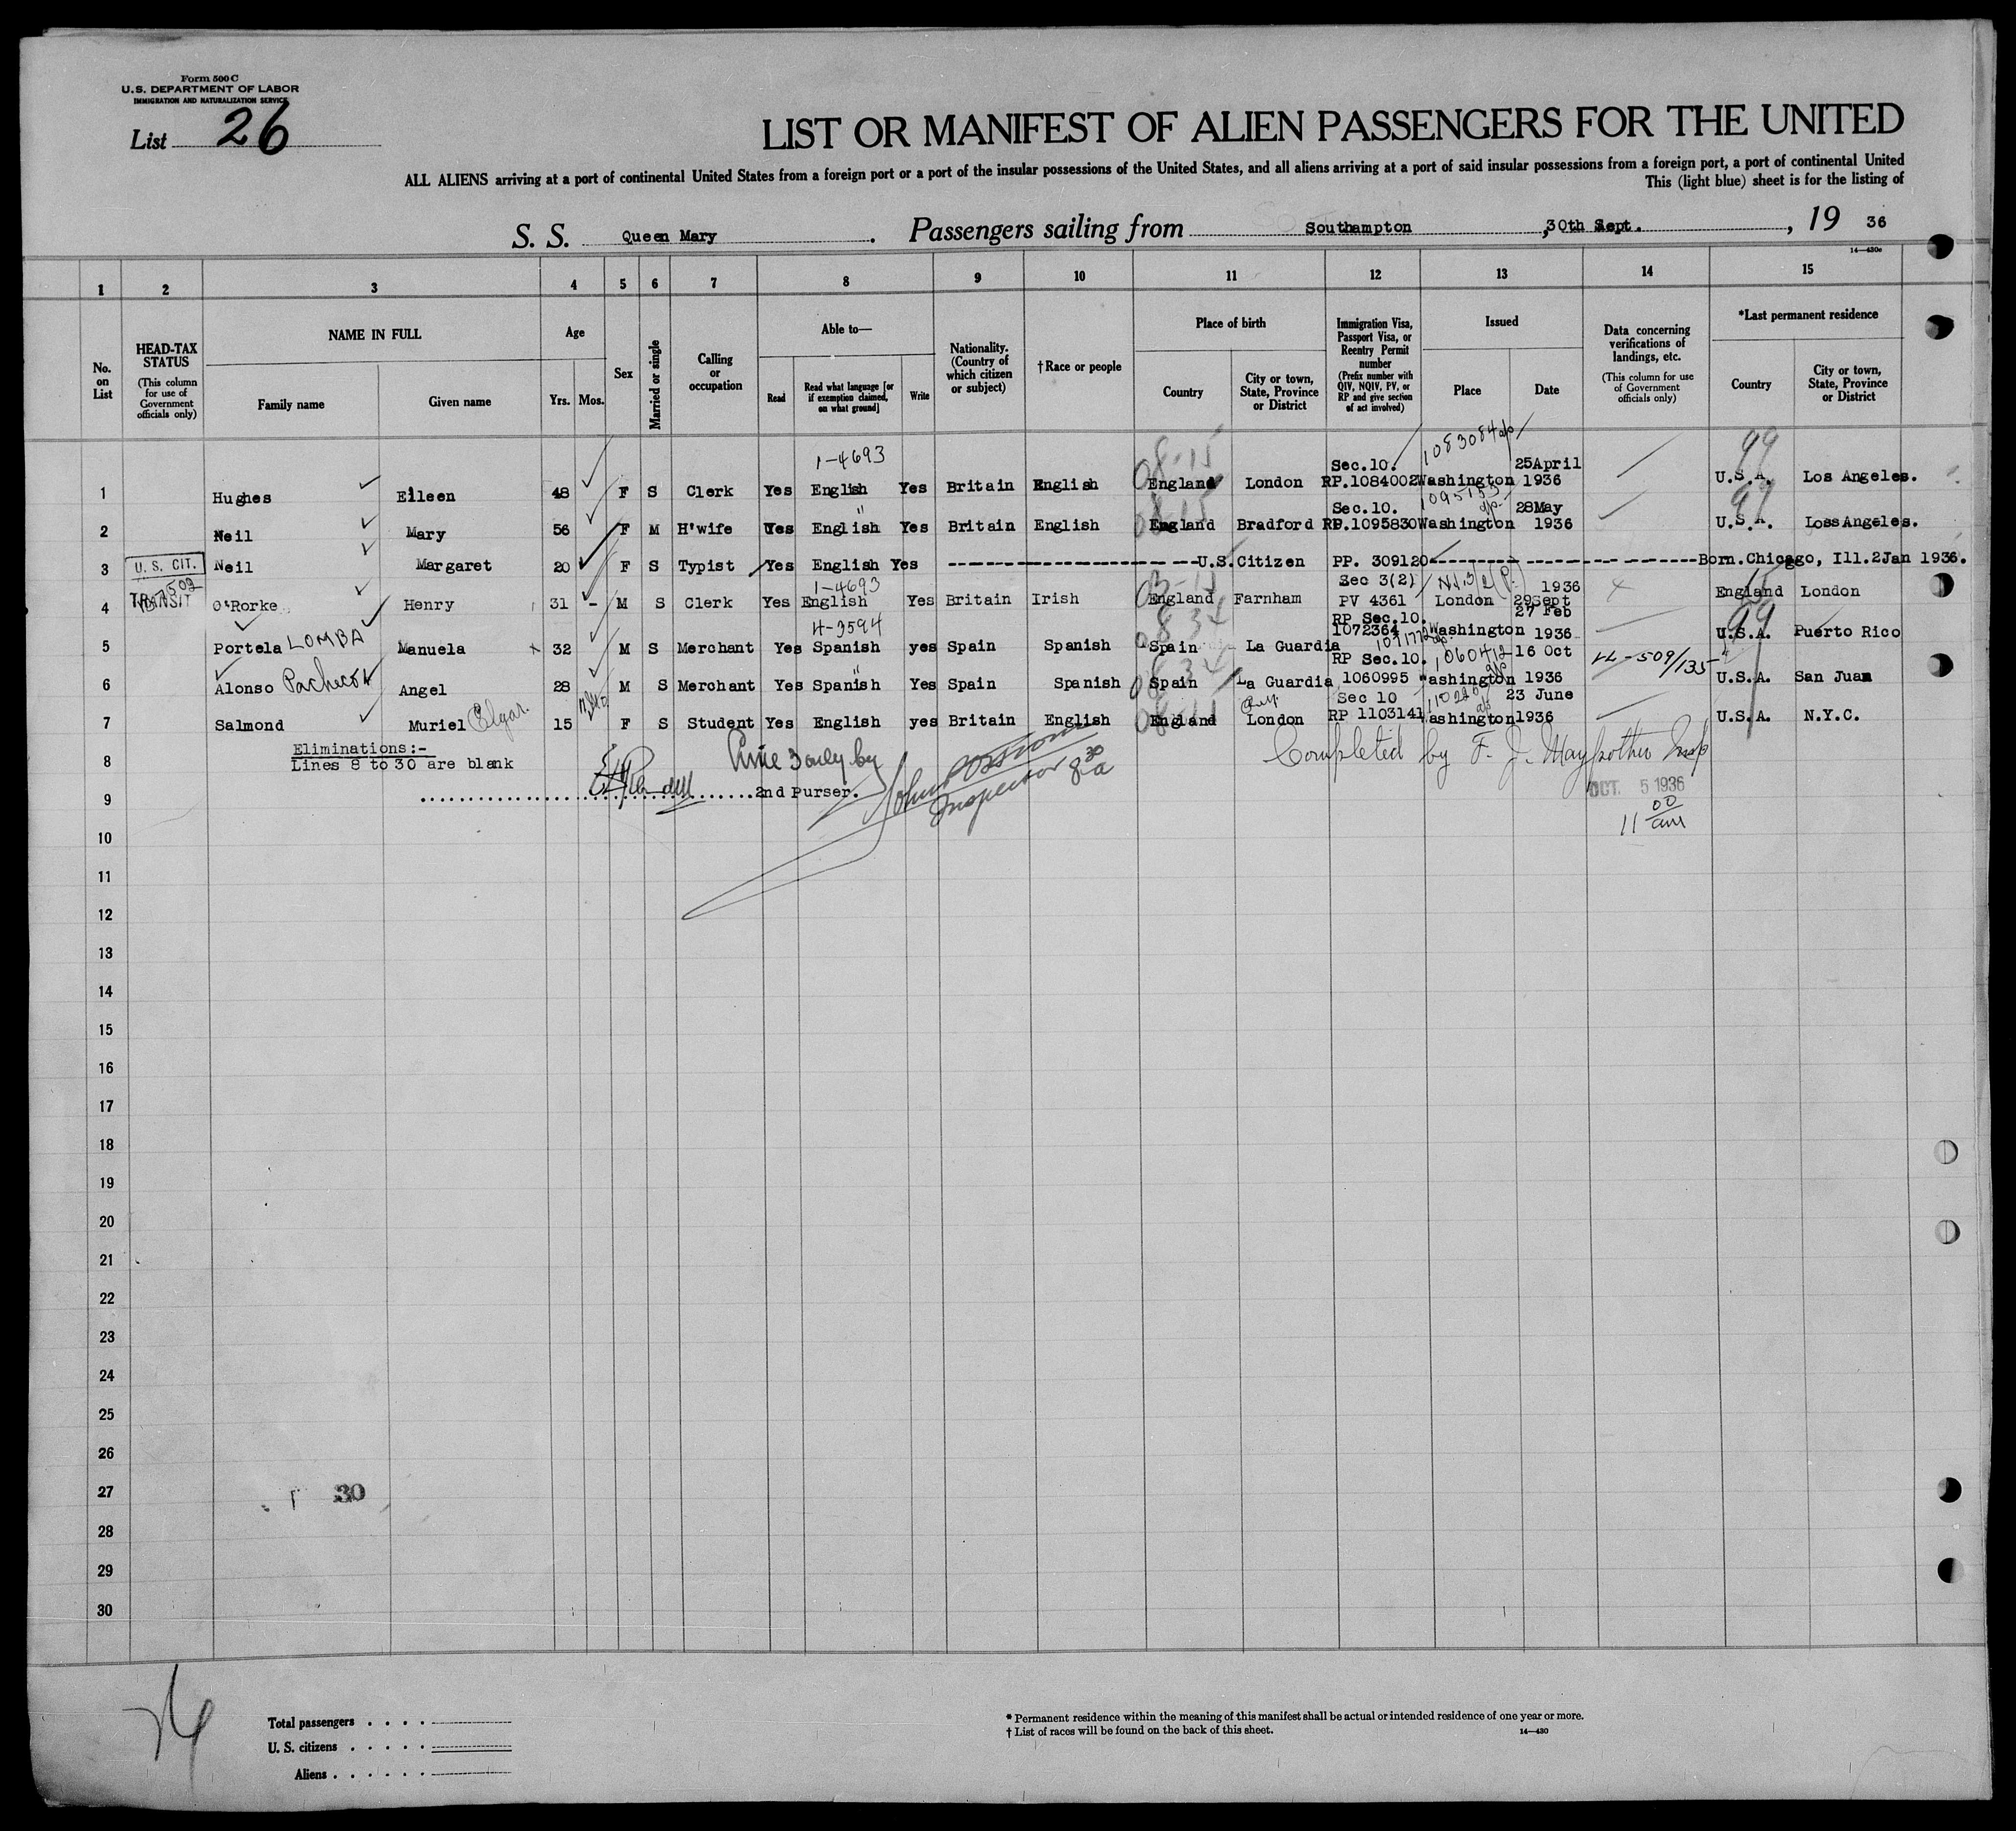 Form 500 C
U.S. DEPARTMENT OF LABOR
IMMIGRATION AND NATURALIZATION SERVICE
List 26
LIST OR MANIFEST OF ALIEN PASSENGERS FOR THE UNITED
ALL ALIENS arriving at a port of continental United States from a foreign port or a port of the insular possessions of the United States, and all aliens arriving at a port of said insular possessions from a foreign port, a port of continental United
This (light blue) sheet is for the listing of
S. S. Queen Mary. Passengers sailing from Southampton, 30th Sept., 19 36
14—430c
1 2 3 4 5 6 7 8 9 10 11 12 13 14 15
No. on List
HEAD-TAX STATUS (This column for use of Government officials only)
NAME IN FULL
Family name
Given name
Age
Yrs. Mos.
Sex
Married or single
Calling or occupation
Able to—
Read
Read what language [or if exemption claimed, on what ground]
Write
Nationality. (Country of which citizen or subject)
†Race or people
Place of birth
Country
City or town, State, Province or District
Immigration Visa, Passport Visa, or Reentry Permit number (Prefix number with QIV, NQIV, PV, or RP and give section of act involved)
Issued
Place
Date
Data concerning verifications of landings, etc. (This column for use of Government officials only)
*Last permanent residence
Country
City or town, State, Province or District
1-4693 08-15 Sec.10. 1083084 25April 99
1 Hughes Eileen 48 F S Clerk Yes English Yes Britain English England London RP.1084002 Washington 1936 U.S.A. Los Angeles.
" 08-15 Sec.10. 28May 99
2 Neil Mary 56 F M H'wife Yes English Yes Britain English England Bradford RP.1095830 Washington 1936 U.S.A. LossAngeles.
3 U. S. CIT. Neil Margaret 20 F S Typist Yes English Yes ----------U.S.Citizen PP. 309120----------Born.Chicago, Ill.2Jan 1936.
1-4693 Sec 3(2) 1936
4 TRANSIT O'Rorke Henry 31 - M S Clerk Yes English Yes Britain Irish England Farnham PV 4361 London 29Sept England London
4-3594 834 RP Sec.10. 27 Feb 99
5 Portela LOMBA Manuela 32 M S Merchant Yes Spanish yes Spain Spanish Spain La Guardia 1072364 Washington 1936 U.S.A. Puerto Rico
" RP Sec.10. 16 Oct
6 Alonso Pacheco Angel 28 M S Merchant Yes Spanish Yes Spain Spanish Spain La Guardia 1060995 Washington 1936 LL-509/135 U.S.A. San Juan
Sec 10 23 June
7 Salmond Muriel Elgar. 15 F S Student Yes English yes Britain English England London RP 1103141 Washington 1936 U.S.A. N.Y.C.
8 Eliminations:-
Lines 8 to 30 are blank
Line 3 only by
Completed by F. J. Maypother Insp
9 2nd Purser.
Inspector 8 30 a
OCT. 5 1936
11 00 am
10
11
12
13
14
15
16
17
18
19
20
21
22
23
24
25
26
27 30
28
29
30
Total passengers . . . .
U. S. citizens . . . . .
Aliens . . . . . .
* Permanent residence within the meaning of this manifest shall be actual or intended residence of one year or more.
† List of races will be found on the back of this sheet.
14—430